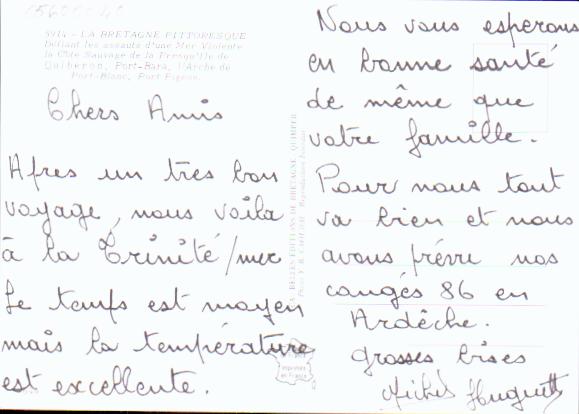 5914 - LA BRETAGNE PITTORESQUE
Défiant les assauts d'une Mer Violente
la Côte Sauvage de la Presqu'île de
Quiberon, Port-Bara, l'Arche de
Port-Blanc, Port Pigeon.
Chers Amis
Afres un très bon
voyage, nous voila
à la Trinité/mer
Le temps est moyen
mais la température
est excellente.
LES BELLES EDITIONS DE BRETAGNE QUIMPER
Nous vous esperons
en bonne santé
de même que
votre famille.
Pour nous tout
va bien et nous
avons prévu nos
congés 86 en
Ardêche.
grosses bises
Michel Huguette
imprimée
en France